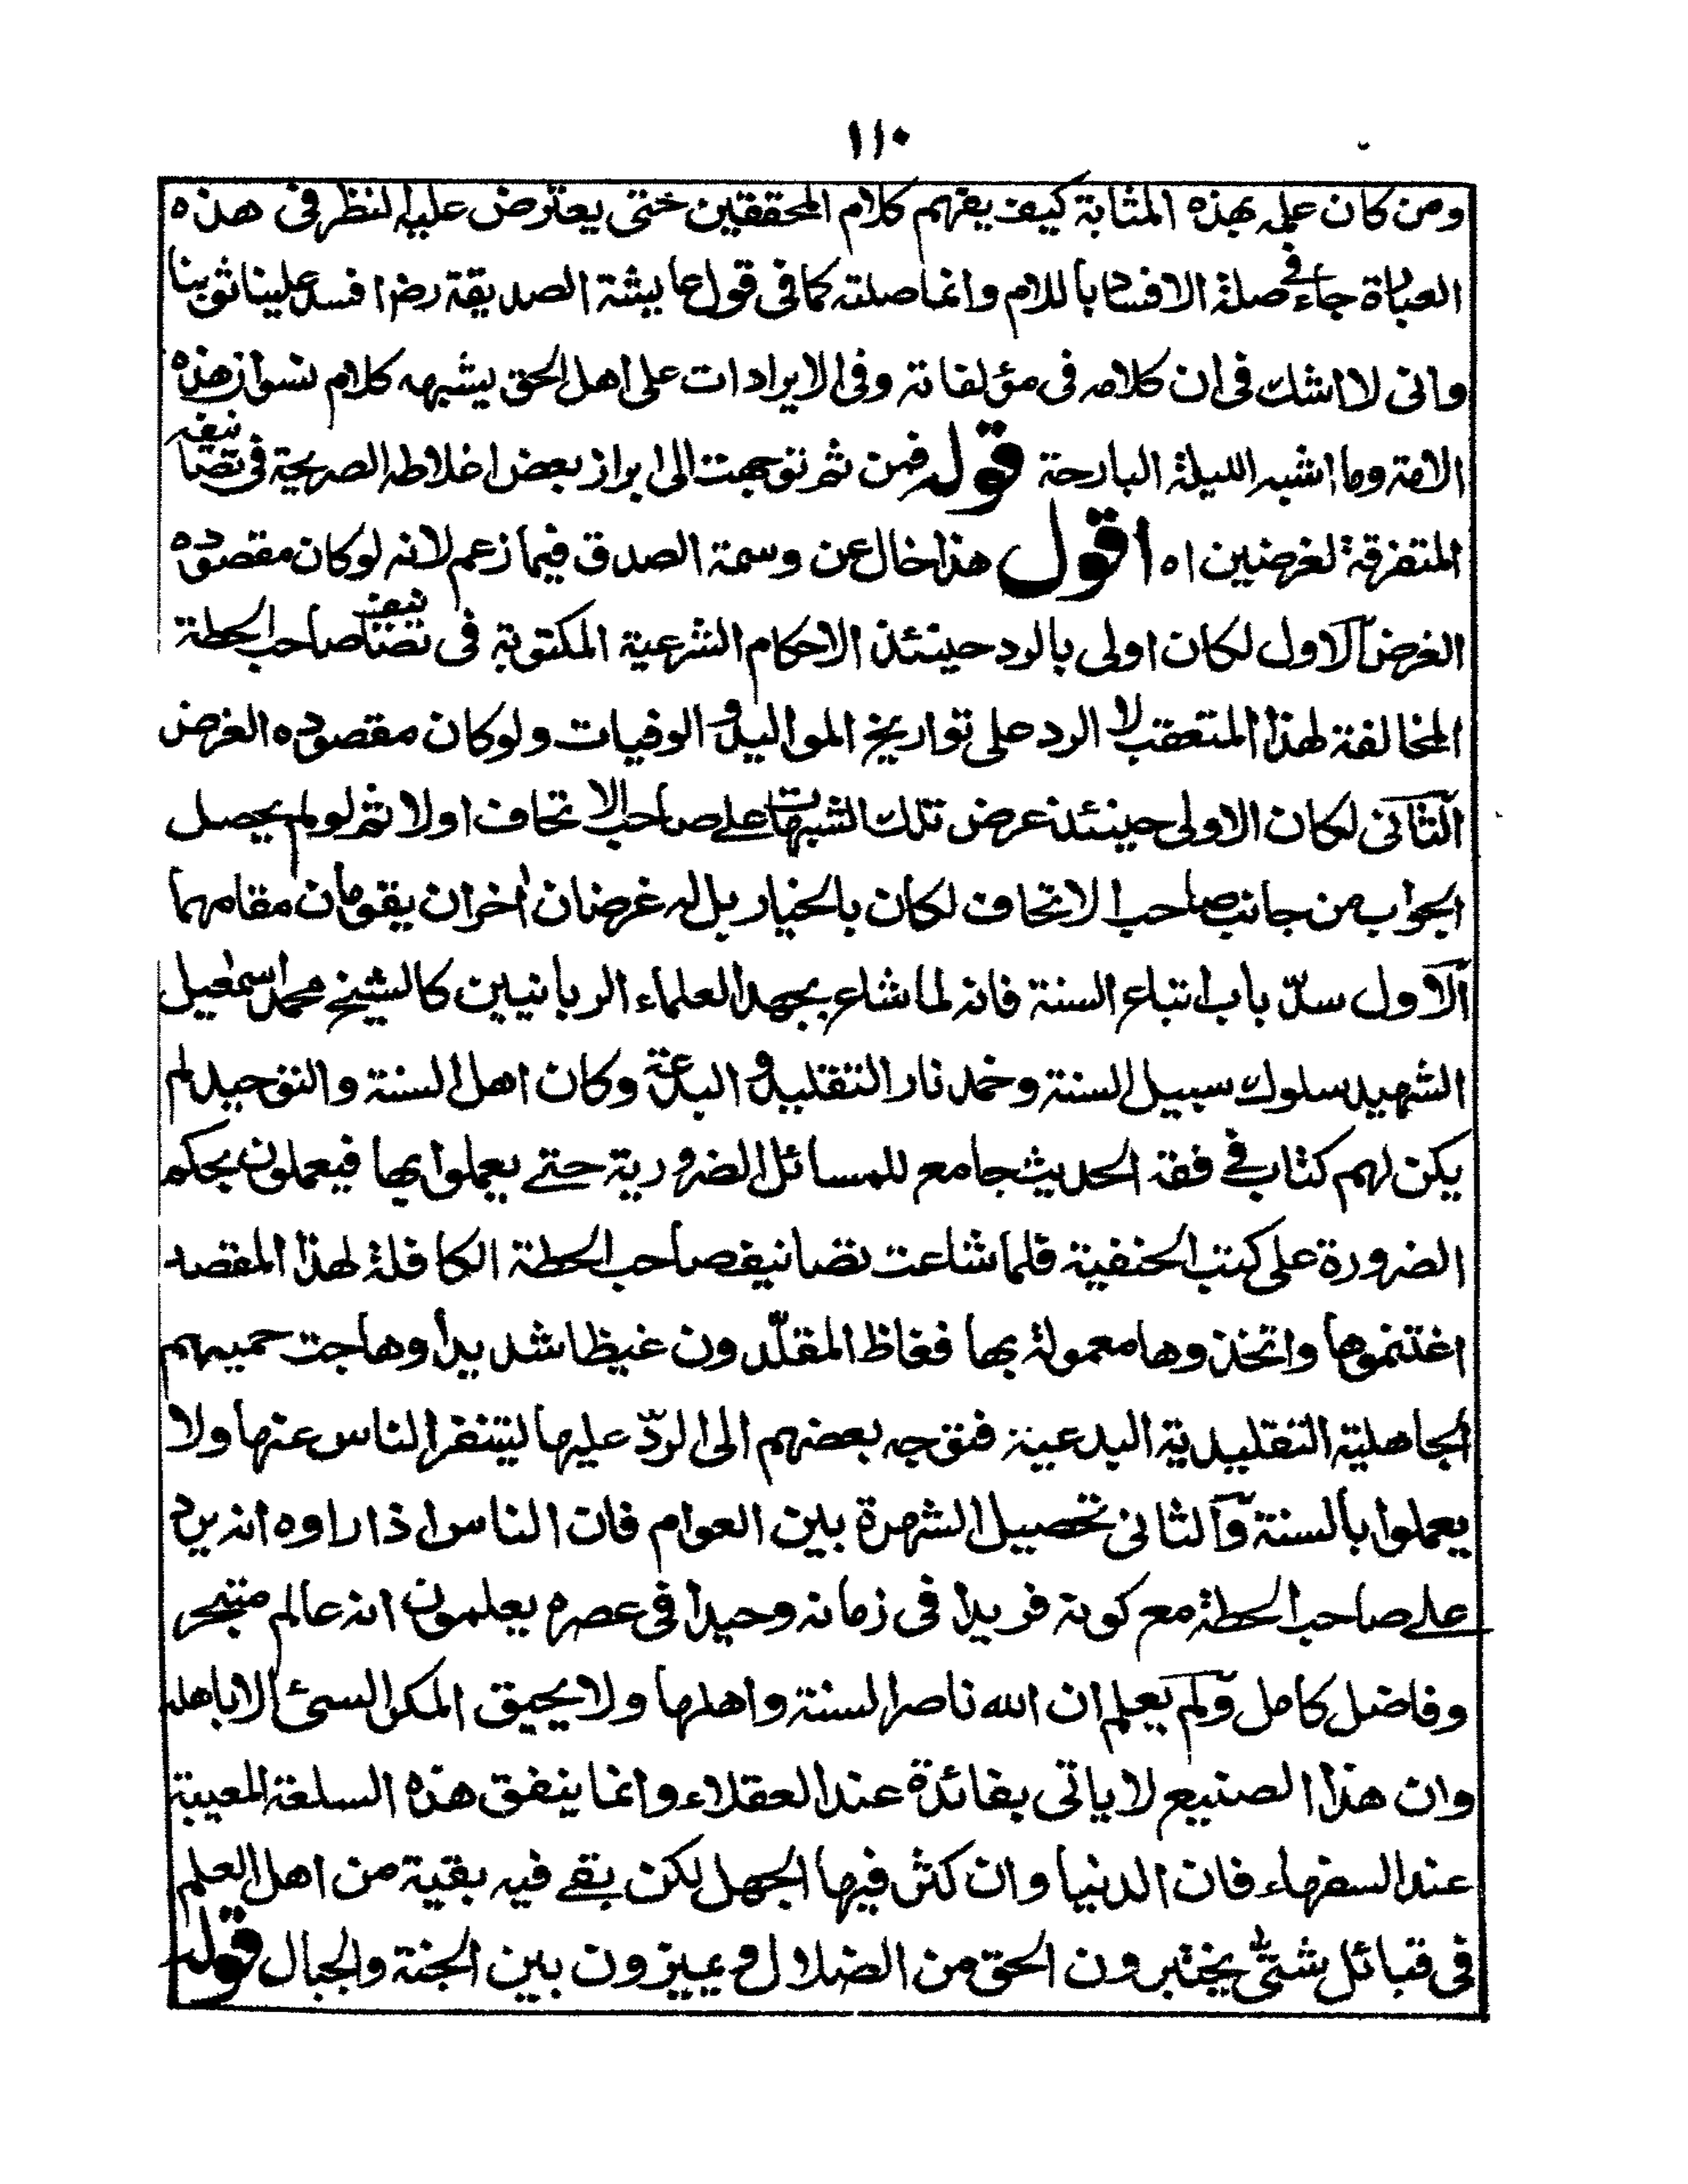 ١١٠
ومن كان علمه بهذه المثابة كيف يفهم كلام المحققين حتى يعترض عليه النظر فى هذه
العبارة جاء فى صلة الافساد باللام وانما صلته كما فى قول عايشة الصديقة رض افسد علينا ثوبنا
وانى لا اشك فى ان كلامه فى مؤلفاته وفى الايرادات على اهل الحق يشبهه كلام نسوان هذه
الامة وما اشبه الليلة البارحة قوله فمن ثم توجهت الى ابراز بعض اغلاطه الصريحة فى تصانيفه
المتفرقة لغرضين اه اقول هذا خال عن وسمة الصدق فيما زعم لانه لو كان مقصوده
الغرض الاول لكان اولى بالرد حينئذ الاحكام الشرعية المكتوبة فى تصانيف صاحب الحطة
المخالفة لهذا المتعقب لا الرد على تواريخ المواليد و الوفيات ولو كان مقصوده الغرض
الثانى لكان الاولى حينئذ عرض تلك الشبهات على صاحب الاتحاف اولا ثم لو لم يحصل
الجواب من جانب صاحب الاتحاف لكان بالخيار بل له غرضان اخران يقومان مقامهما
الاول سدّ باب اتباع السنة فانه لما شاع بجهد العلماء الربانيين كالشيخ محمد اسمعيل
الشهيد سلوك سبيل السنة وخمد نار التقليد و البدعة وكان اهل السنة والتوحيد لم
يكن لهم كتاب فى فقه الحديث جامع للمسائل الضرورية حتى يعملوا بها فيعملون بحكم
الضرورة على كتب الحنفية فلما شاعت تصانيف صاحب الحطة الكافلة لهذا المقصد
اغتنموها واتخذوها معمولة بها فغاظ المقلّدون غيظا شديدا وهاجت حميتهم
الجاهلية التقليدية البدعية فتوجه بعضهم الى الردّ عليها ليتنفر الناس عنها ولا
يعملوا بالسنة والثانى تحصيل الشهرة بين العوام فان الناس اذا راوه انه يرد
على صاحب الحطة مع كونه فريدا فى زمانه وحيدا فى عصره يعلمون انه عالم متبحر
وفاضل كامل ولم يعلم ان الله ناصر السنة واهلها ولا يحيق المكر السئ الا باهله
وان هذا الصنيع لا ياتى بفائدة عند العقلاء وانما ينفق هذه السلعة المعيبة
عند السفهاء فان الدنيا وان كثر فيها الجهل لكن بقى فيه بقية من اهل العلم
فى قبائل شتّى يختبرون الحق من الضلال و يميزون بين الجنة والجبال قوله